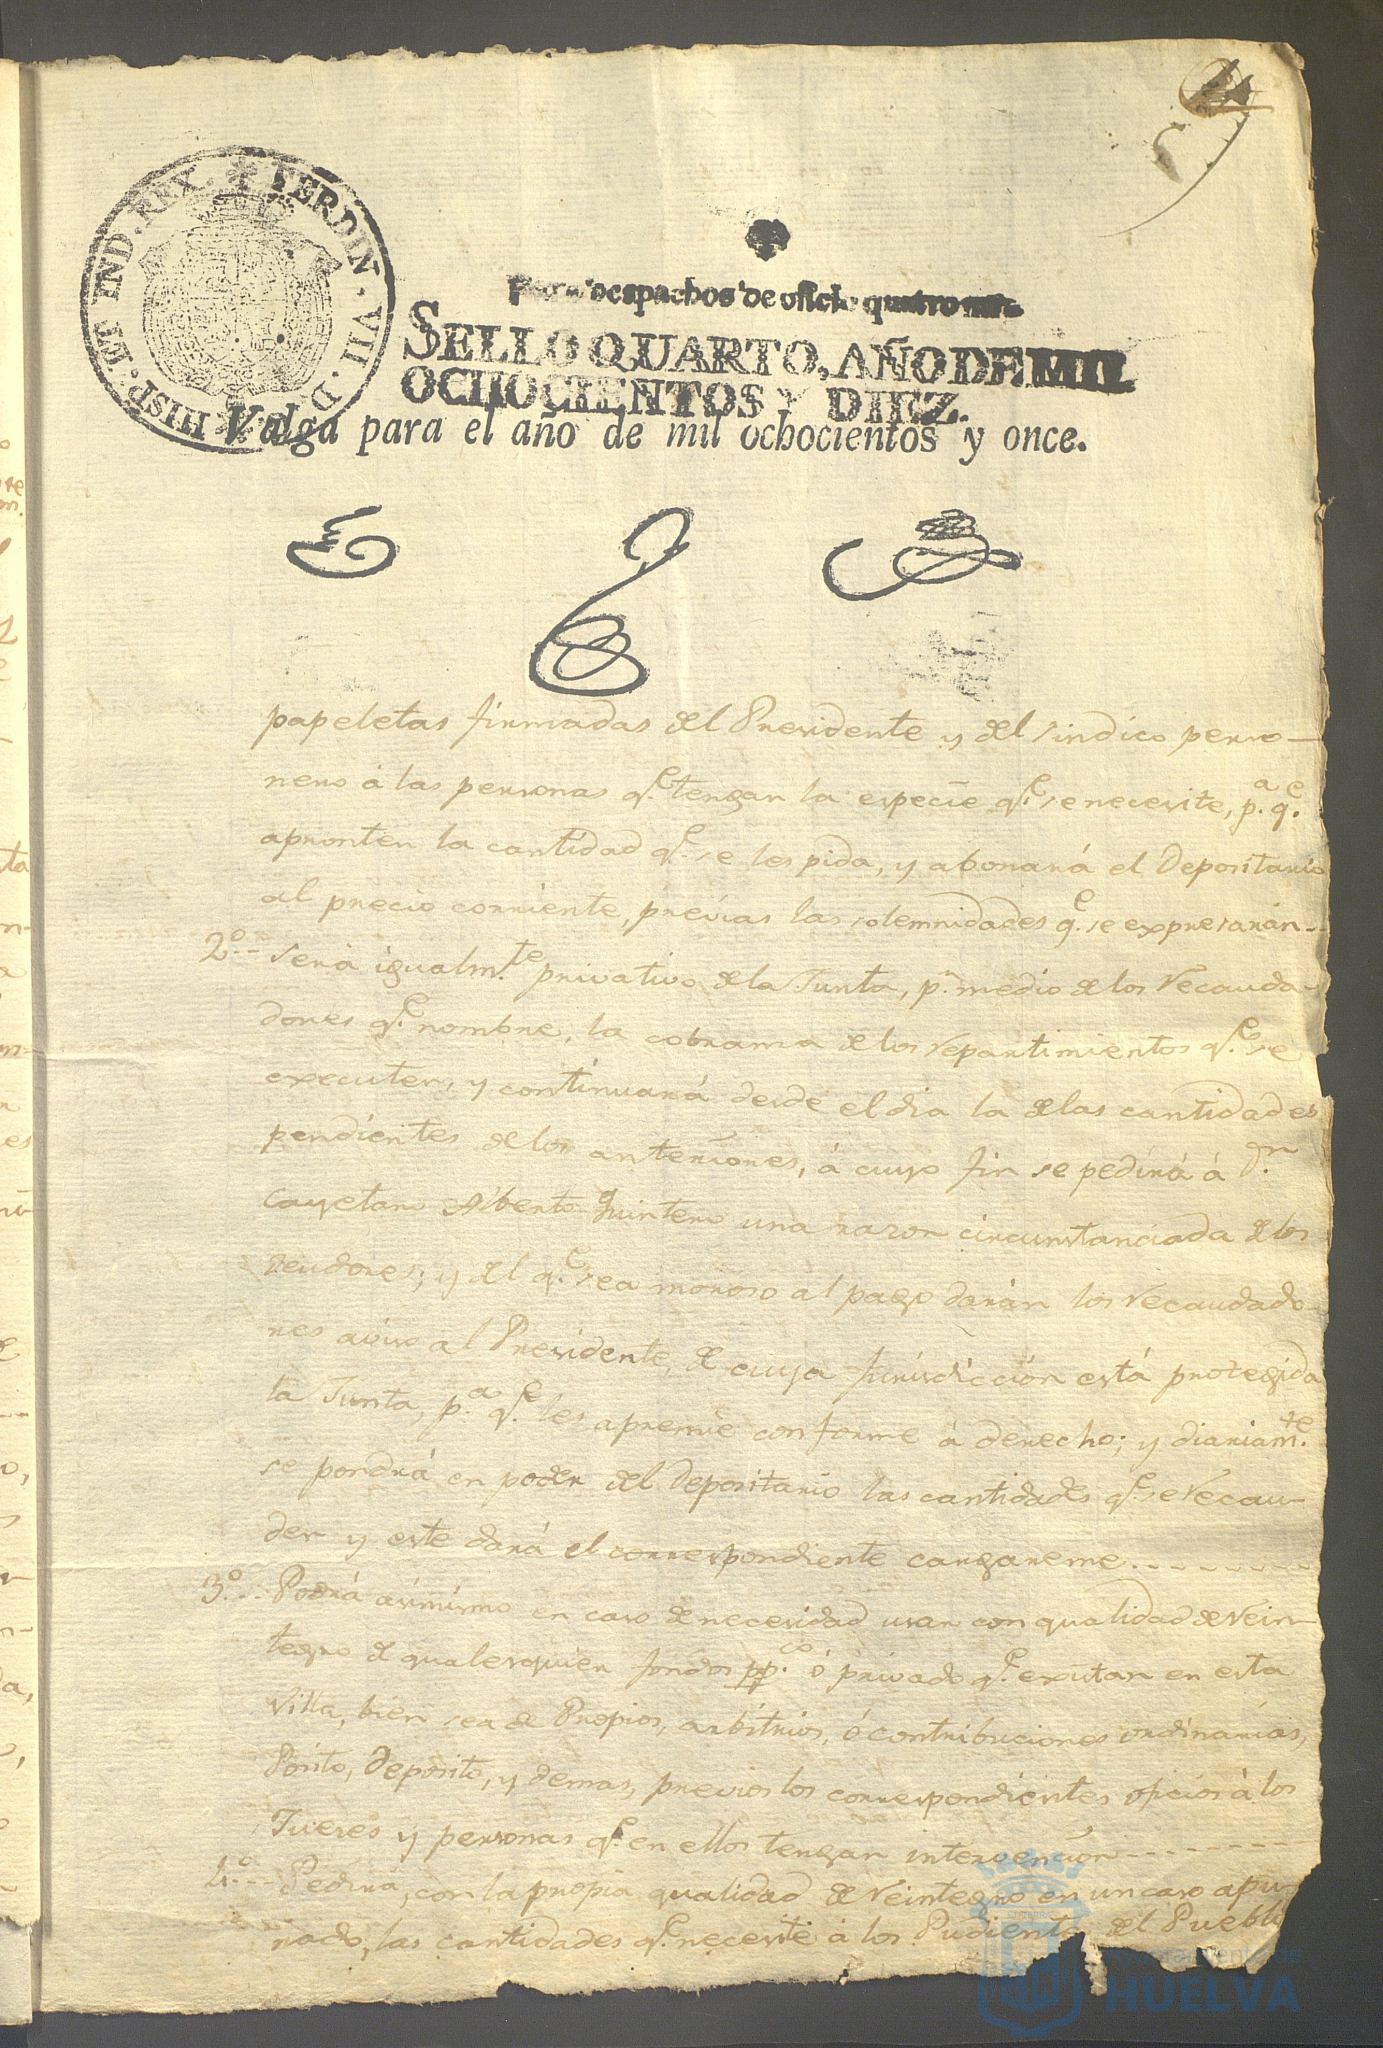 FERDIN. VII. D. G. HISP. ET IND. REX.
Para despachos de oficio quatro mrs.
SELLO QUARTO, AÑO DE MIL
OCHOCIENTOS Y DIEZ.
Valga para el año de mil ochocientos y once.
papeletas firmadas del Presidente y del sindico perso-
nero á las personas q.e tengan la especie q.e se necesite, p.a q.e
apronten la cantidad q.e se les pida, y abonará el Depositario
al precio corriente, previas las solemnidades q.e se expresarán--
2.o-- Será igualm.te privativo de la Junta, p.r medio de los Recauda-
dores q.e nombre, la cobranza de los repartimientos q.e se
executen, y continuará desde el dia la de las cantidades
pendientes de los anteriores, á cuyo fin se pedirá á D.n
Cayetano Alberto Quintero una razon circunstanciada de los
deudores; y del q.e sea moroso al pago darán los Recaudado-
res aviso al Presidente, de cuya Jurisdiccion está protegida
la Junta, p.a q.e les apremie conforme á derecho; y diariam.te
se pondrá en poder del Depositario las cantidades q.e se recau-
den y este dará el correspondiente cargareme.--------
3.o-- Podrá asimismo en caso de necesidad usar con qualidad de rein-
tegro de qualesquier fondos pp.co ó privado q.e existan en esta
Villa, bien sea de Propios, arbitrios, ó contribuciones ordinarias,
Pósito, Deposito, y demas, previos los correspondientes oficios á los
Jueces y personas q.e en ellos tengan intervencion--------
4.o--- Pedirá, con la propia qualidad de reintegro en un caso apu-
rado, las cantidades q.e necesite á los Pudientes del Pueblo
Ayuntamiento de
HUELVA